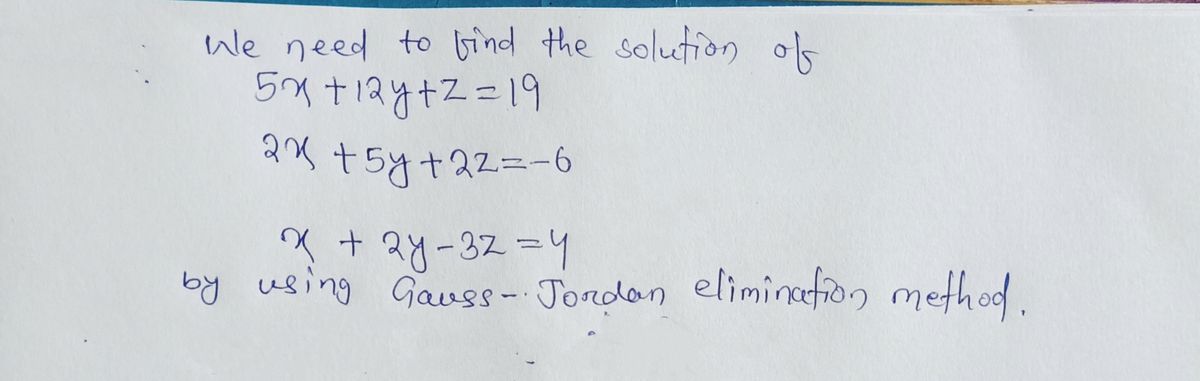 We need to find the solution of
5x + 12y + z = 19
2x + 5y + 2z = -6
x + 2y - 3z = 4
by using Gauss-Jordan elimination method.